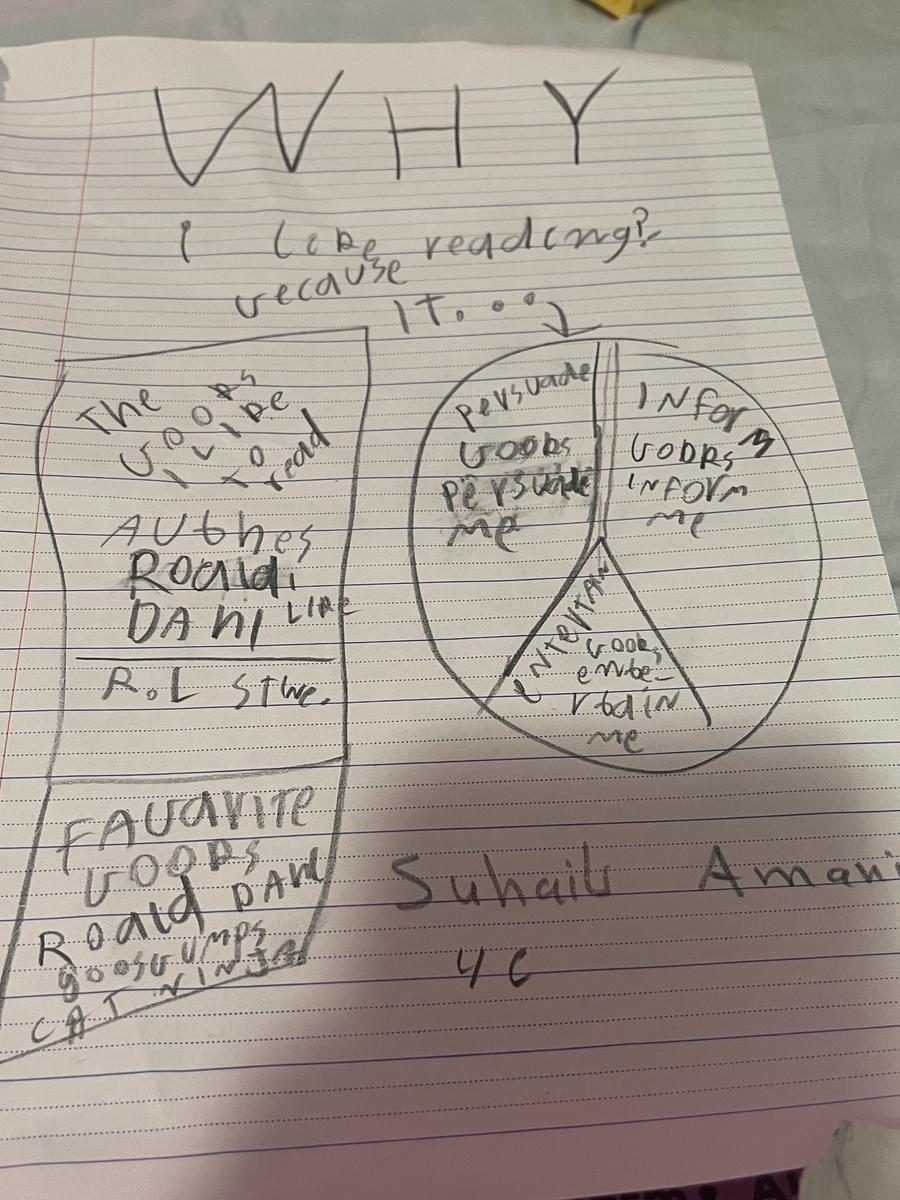 WHY
I like reading?
because
IT...
The
books
I like
to
read
Authes
Roald.
DAhl LIKE
R.L Stine.
FAVAVITE
books
ROald DAHl
goosbumps
CAT NINJA
Persuade
books
persuade
me
INform
books
inform
me
enTerTAN
books
ente-
rtain
me
Suhaib Amani
4C